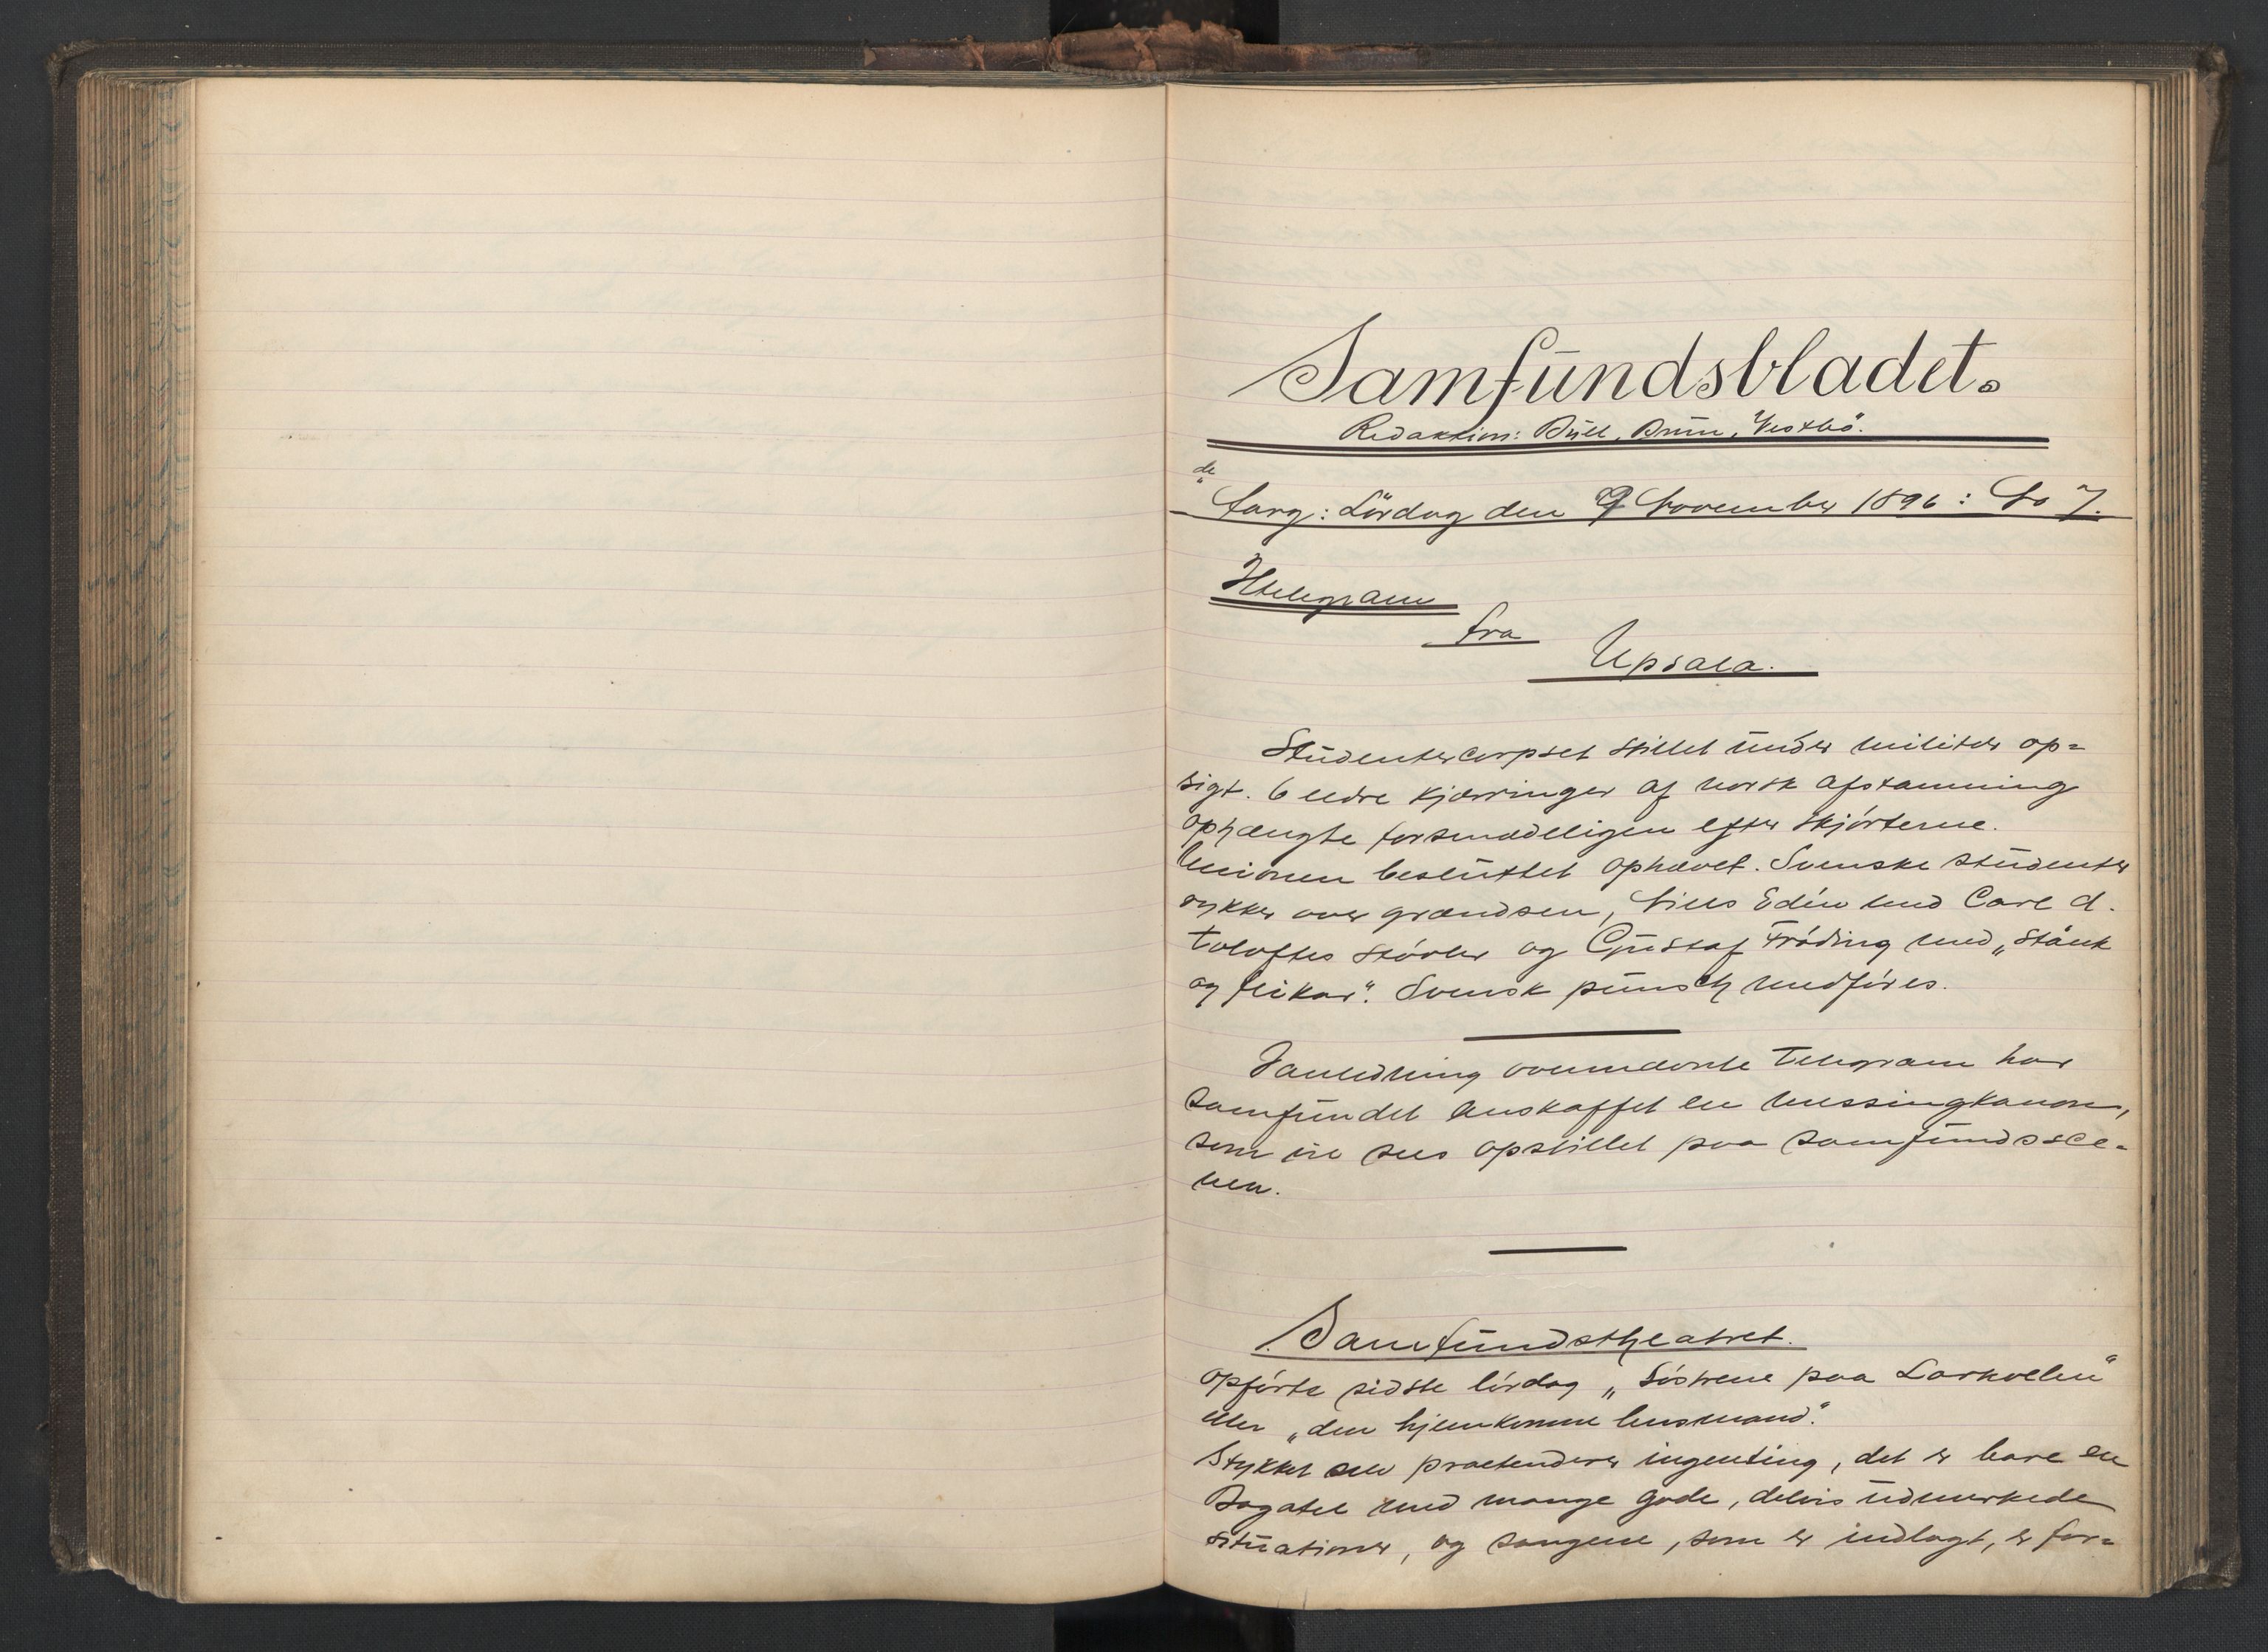 Samfundsbladet.
Redaktion: Bull, Brun, Vestbö.
de
Aarg: Lördag den November 1896: No 7.
Telegram
fra
Upsala.
Studentercorpset stillet under militær op=
sigt. 6 eldre kjærringer af norsk afstamning
ophængte forsmædeligen efter skjörterne.
Unionen besluttet ophævet. Svenske studenter
rykker over grændsen, Nils Edén med Carl d.
tolvftes stövler og Gustaf Fröding med „Stänk
og flikar". Svensk punsch medföres.
I anledning ovennævnte telegram har
Samfundet anskaffet en messingkanon,
som vil sees opstillet paa Samfundssce-
nen.
Samfundstheatret.
opförte sidste lördag „Söstrene paa Larkollen"
eller „den hjemkomne husmand".
Stykket selv praetenderer ingenting, det er bare en
Bagatel med mange gode, delvis udmerkede
situationer, og sangene, som er indlagt, er for=